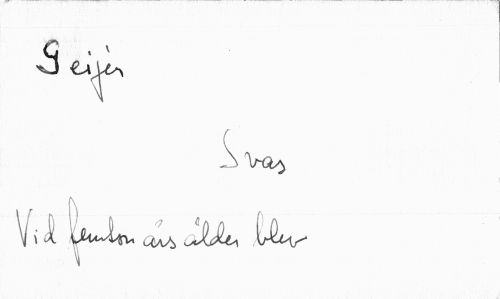 Geijer
Svas
Vid femton års ålder blev